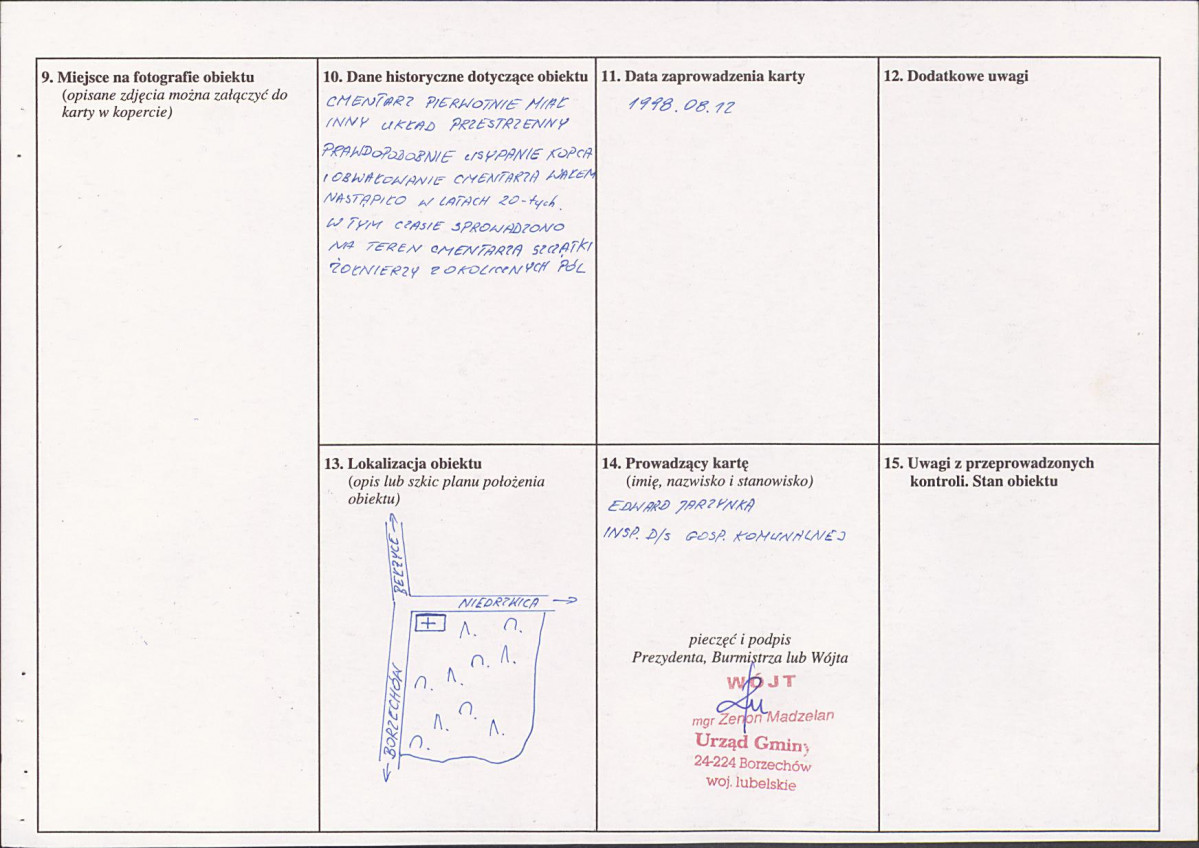 9. Miejsce na fotografie obiektu
(opisane zdjęcia można załączyć do
karty w kopercie)
10. Dane historyczne dotyczące obiektu
CMENTARZ PIERWOTNIE MIAŁ
INNY UKŁAD PRZESTRZENNY
PRAWDOPODOBNIE USYPANIE KOPCA
I OBWAŁOWANIE CMENTARZA WAŁEM
NASTĄPIŁO W LATACH 20-tych.
W TYM CZASIE SPROWADZONO
NA TEREN CMENTARZA SZCZĄTKI
ŻOŁNIERZY Z OKOLICZNYCH PÓL
11. Data zaprowadzenia karty
1998.08.12
12. Dodatkowe uwagi
13. Lokalizacja obiektu
(opis lub szkic planu położenia
obiektu)
BEŁŻYCE
NIEDRZWICA
BORZECHÓW
14. Prowadzący kartę
(imię, nazwisko i stanowisko)
EDWARD JARZYNKA
INSP. D/s GOSP. KOMUNALNEJ
pieczęć i podpis
Prezydenta, Burmistrza lub Wójta
WÓJT
mgr Zenon Madzelan
Urząd Gminy
24-224 Borzechów
woj. lubelskie
15. Uwagi z przeprowadzonych
kontroli. Stan obiektu